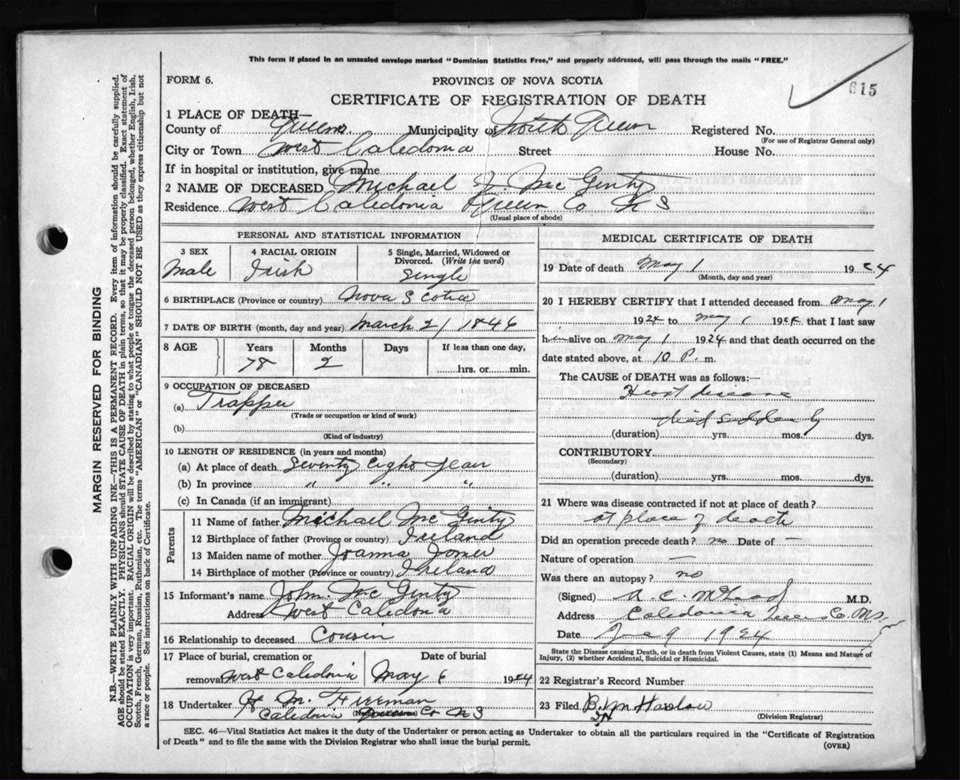 This form if placed in an unsealed envelope marked "Dominion Statistics Free," and properly addressed, will pass through the mails "FREE."
FORM 6.
PROVINCE OF NOVA SCOTIA
CERTIFICATE OF REGISTRATION OF DEATH
615
1 PLACE OF DEATH—
County of Queens Municipality of North Queen Registered No.
(For use of Registrar General only)
City or Town West Caledonia Street House No.
If in hospital or institution, give name
2 NAME OF DECEASED Michael J. McGinty
Residence West Caledonia Queen Co N S
(Usual place of abode)
PERSONAL AND STATISTICAL INFORMATION
3 SEX
Male
4 RACIAL ORIGIN
Irish
5 Single, Married, Widowed or
Divorced. (Write the word)
Single
6 BIRTHPLACE (Province or country) Nova Scotia
7 DATE OF BIRTH (month, day and year) March 21 1846
8 AGE
Years
78
Months
2
Days
If less than one day,
hrs. or min.
9 OCCUPATION OF DECEASED
(a) Trapper
(Trade or occupation or kind of work)
(b)
(Kind of industry)
10 LENGTH OF RESIDENCE (in years and months)
(a) At place of death Seventy Eight year
(b) In province " " "
(c) In Canada (if an immigrant)
Parents
11 Name of father Michael McGinty
12 Birthplace of father (Province or country) Ireland
13 Maiden name of mother Joanna
14 Birthplace of mother (Province or country) Ireland
15 Informant's name John McGinty
Address West Caledonia
16 Relationship to deceased Cousin
17 Place of burial, cremation or
removal West Caledonia
Date of burial
May 6 1924
18 Undertaker H M Freeman
Caledonia Queens Co N S
MEDICAL CERTIFICATE OF DEATH
19 Date of death May 1 1924
(Month, day and year)
20 I HEREBY CERTIFY that I attended deceased from May 1
1924 to May 1 1924 that I last saw
him alive on May 1 1924 and that death occurred on the
date stated above, at 10 P. m.
The CAUSE OF DEATH was as follows:—
Heart disease
died suddenly
(duration) yrs. mos. dys.
CONTRIBUTORY
(Secondary)
(duration) yrs. mos. dys.
21 Where was disease contracted if not at place of death?
at place of death
Did an operation precede death? no Date of —
Nature of operation —
Was there an autopsy? no
(Signed) M.D.
Address Caledonia
Date June 9 1924
State the Disease causing Death, or in death from Violent Causes, state (1) Means and Nature of
Injury, (2) whether Accidental, Suicidal or Homicidal.
22 Registrar's Record Number
23 Filed B. M. Harlow
(Division Registrar)
SEC. 46—Vital Statistics Act makes it the duty of the Undertaker or person acting as Undertaker to obtain all the particulars required in the "Certificate of Registration
of Death" and to file the same with the Division Registrar who shall issue the burial permit.
(OVER)
MARGIN RESERVED FOR BINDING
N.B.—WRITE PLAINLY WITH UNFADING INK—THIS IS A PERMANENT RECORD. Every item of information should be carefully supplied.
AGE should be stated EXACTLY. PHYSICIANS should STATE CAUSE OF DEATH in plain terms, so that it may be properly classified. Exact statement of
OCCUPATION is very important. RACIAL ORIGIN will be described by stating to what people or tongue the deceased person belonged, whether English, Irish,
Scotch, French, German, Russian, Ruthenian, etc. The terms "AMERICAN" or "CANADIAN" SHOULD NOT BE USED as they express citizenship but not
a race or people. See instructions on back of Certificate.